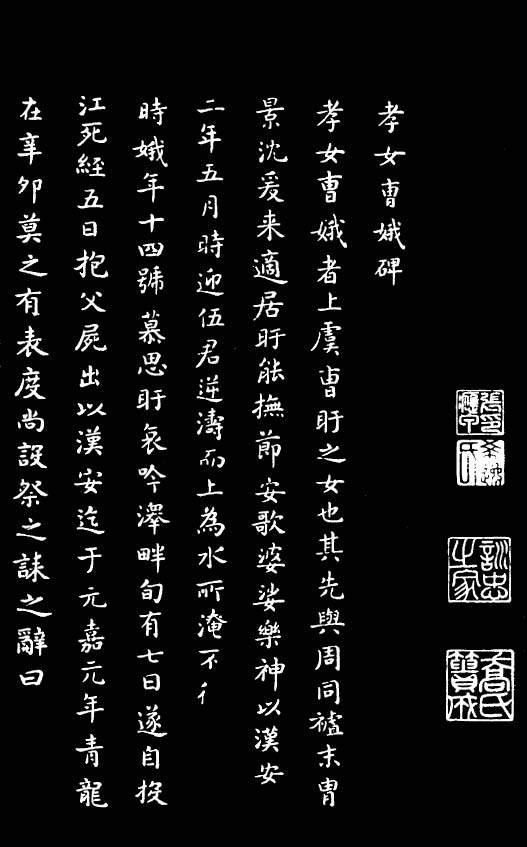 孝女曹娥碑
孝女曹娥者上虞曹盱之女也其先與周同祖末胄
景沈爰来適居盱能撫節安歌婆娑樂神以漢安
二年五月時迎伍君逆濤而上為水所淹不得
時娥年十四號慕思盱哀吟澤畔旬有七日遂自投
江死經五日抱父屍出以漢安迄于元嘉元年青龍
在辛卯莫之有表度尚設祭之誄之辭曰
訓忠之家